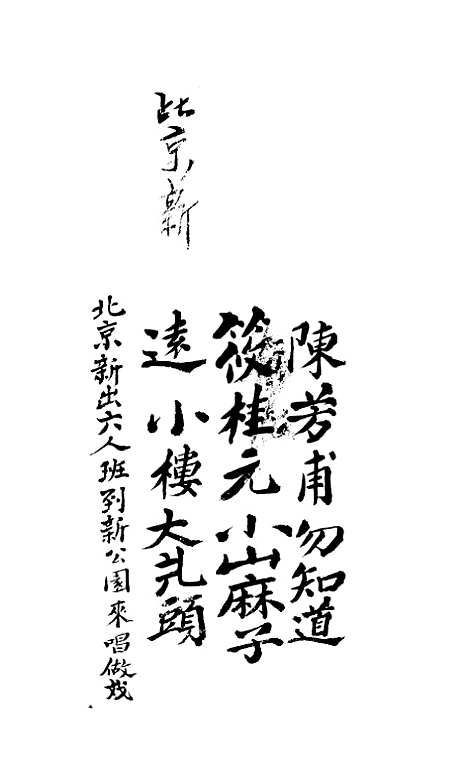 陳芳甫勿知道
筱桂元小山麻子
遠小樓大乳頭
北京新出六人班到新公園來唱做戏
北京新